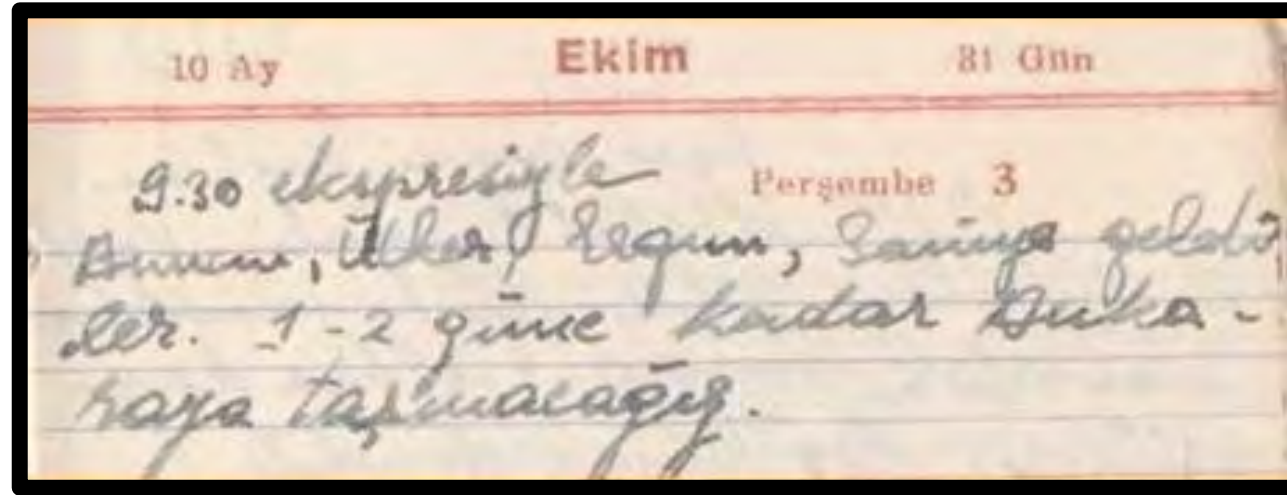 10 Ay Ekim 31 Gün
9.30 ekspresiyle Perşembe 3
Annem, Ülker, Ergun, Saniye geldi
ler. 1-2 güne kadar Anka-
raya taşınacağız.